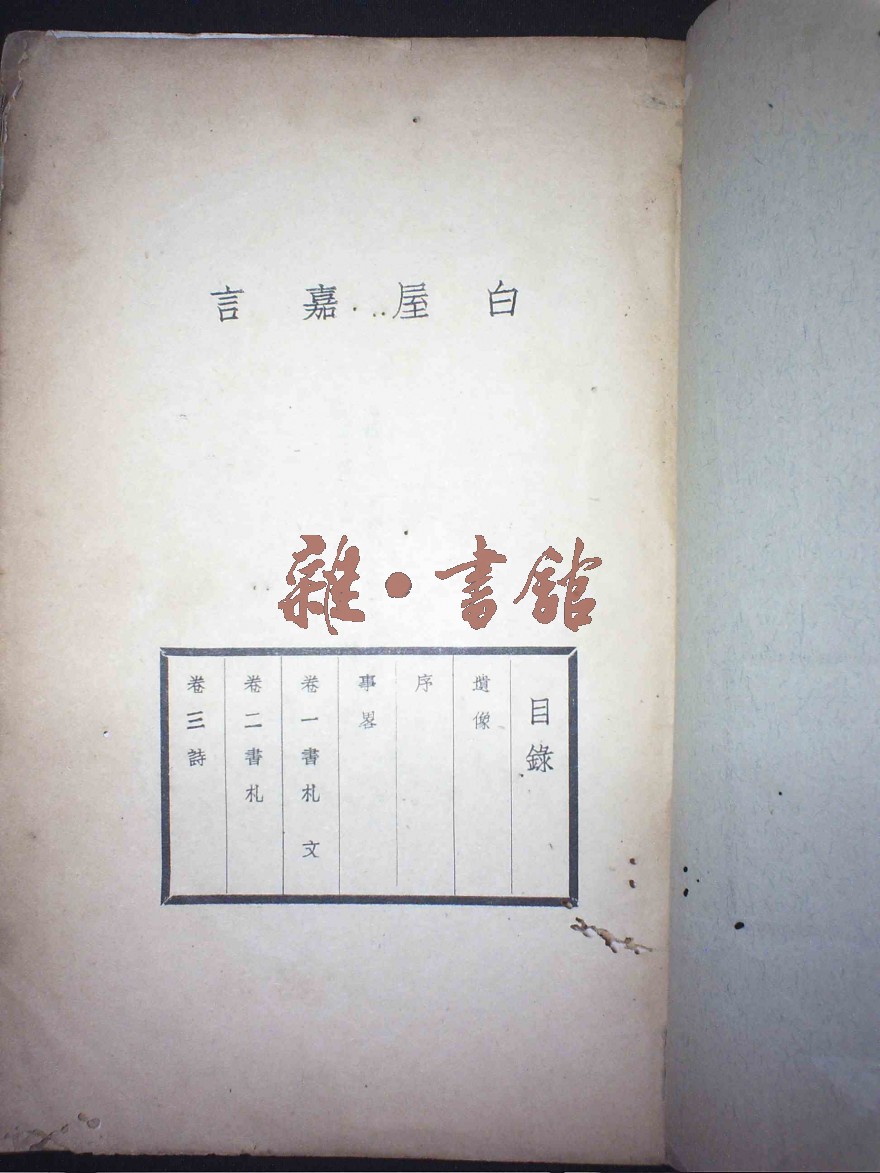 白屋嘉言
雜·書館
目錄
遺像
序
事畧
卷一書札 文
卷二書札
卷三詩